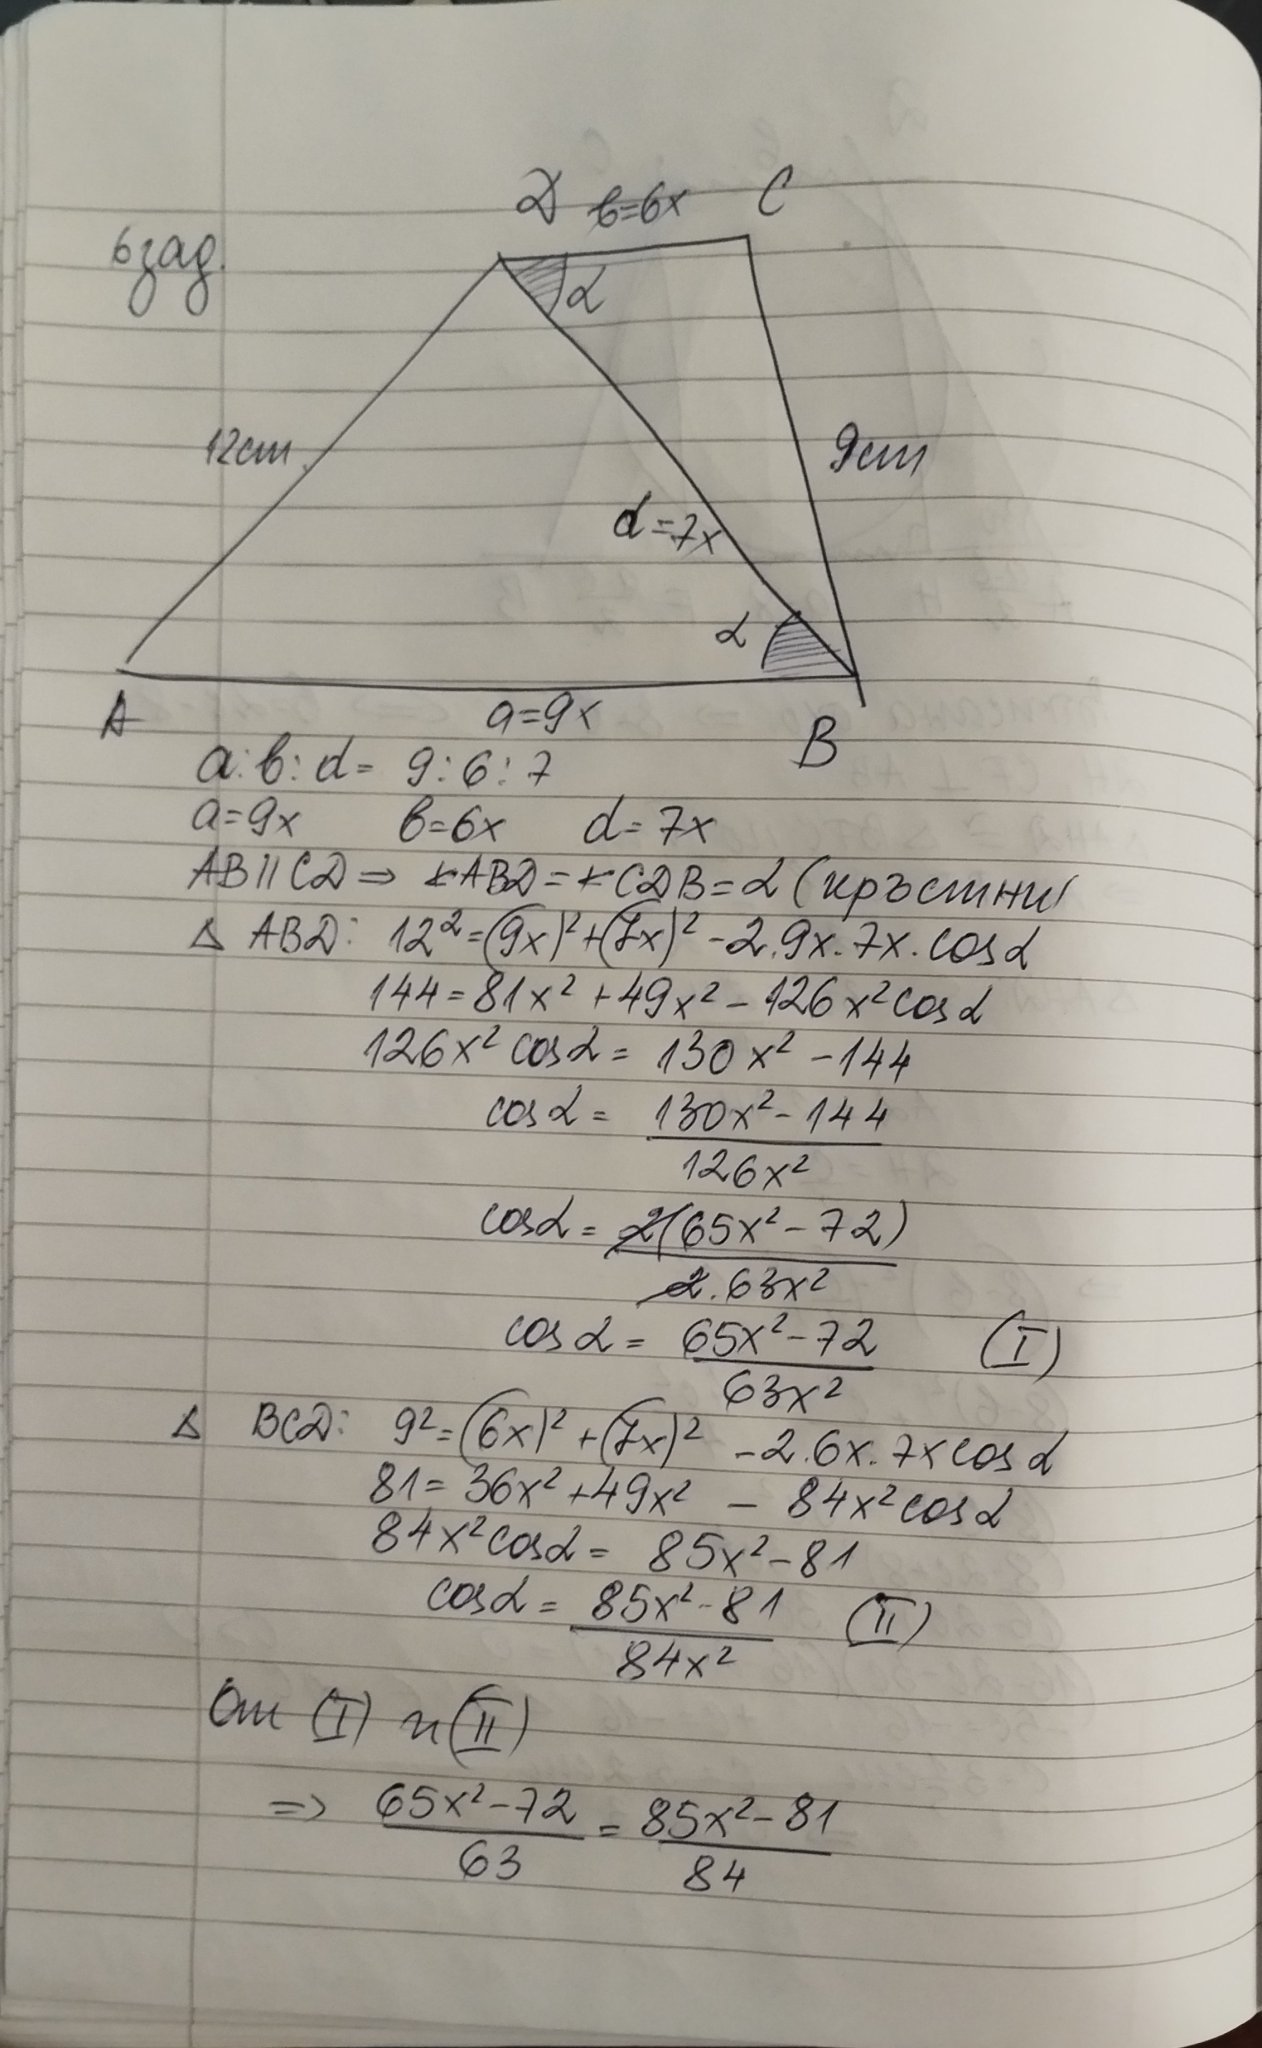 6 зад.
D b=6x C
α
12cm
9cm
d=7x
α
A a=9x B
a:b:d= 9:6:7
a=9x b=6x d=7x
AB||CD ⇒ ∢ABD=∢CDB=α (кръстни
△ ABD: 12²=(9x)²+(7x)²-2.9x.7x.cosα
144=81x²+49x²-126x²cosα
126x²cosα= 130x²-144
cosα= (130x²-144)/(126x²)
cosα= 2(65x²-72)/(2.63x²)
cosα= (65x²-72)/(63x²) (I)
△ BCD: 9²=(6x)²+(7x)²-2.6x.7xcosα
81=36x²+49x² - 84x²cosα
84x²cosα= 85x²-81
cosα= (85x²-81)/(84x²) (II)
От (I) и (II)
=> (65x²-72)/63 = (85x²-81)/84